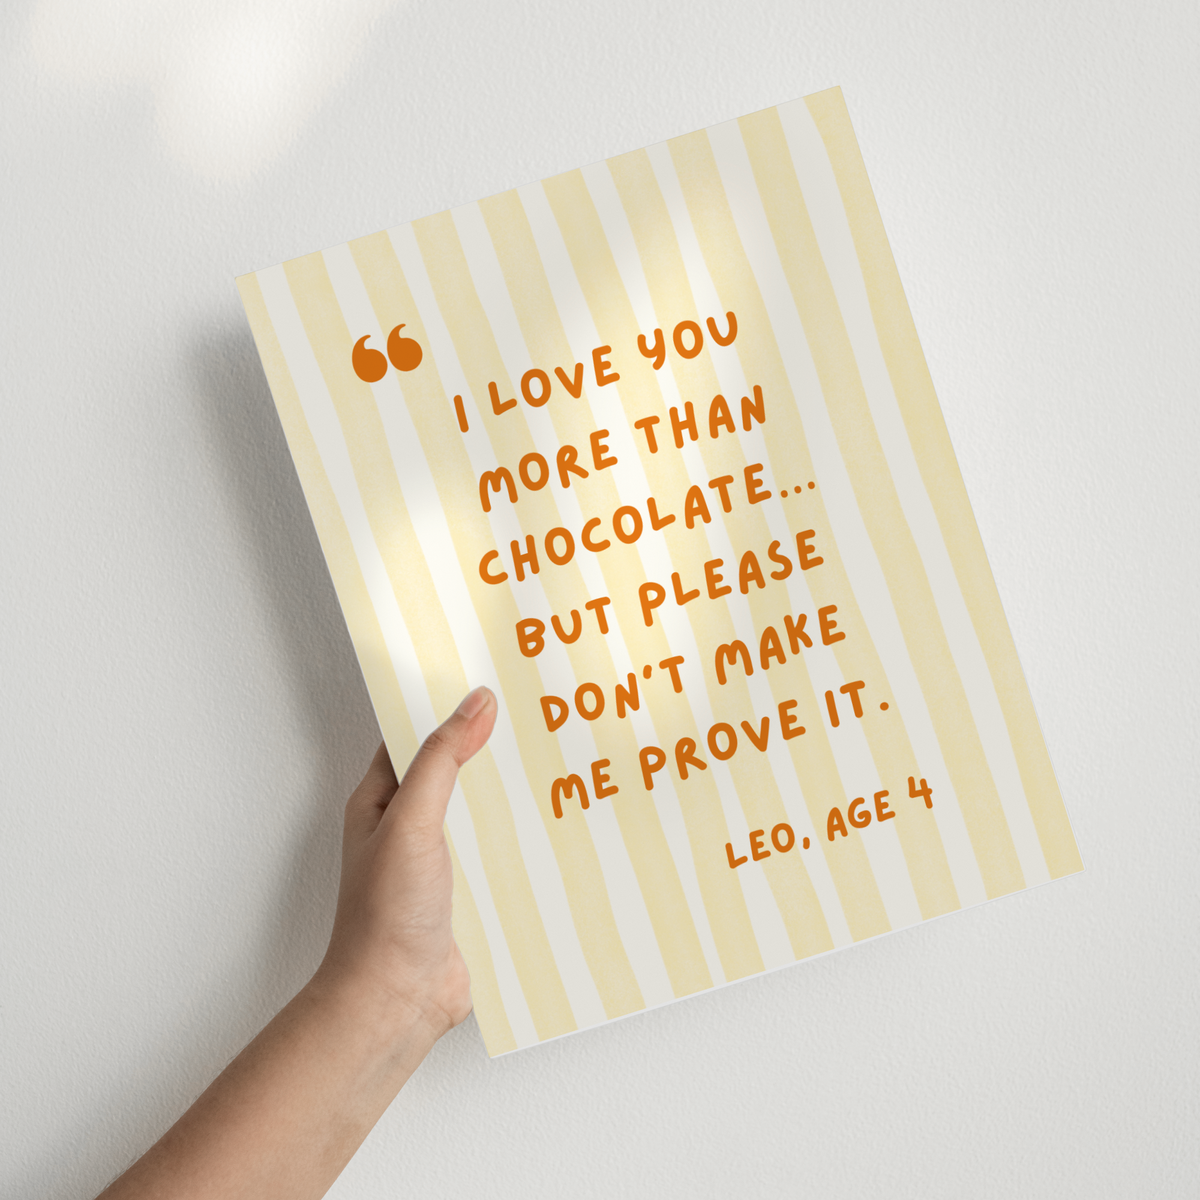 “ I LOVE YOU
MORE THAN
CHOCOLATE...
BUT PLEASE
DON'T MAKE
ME PROVE IT.
LEO, AGE 4